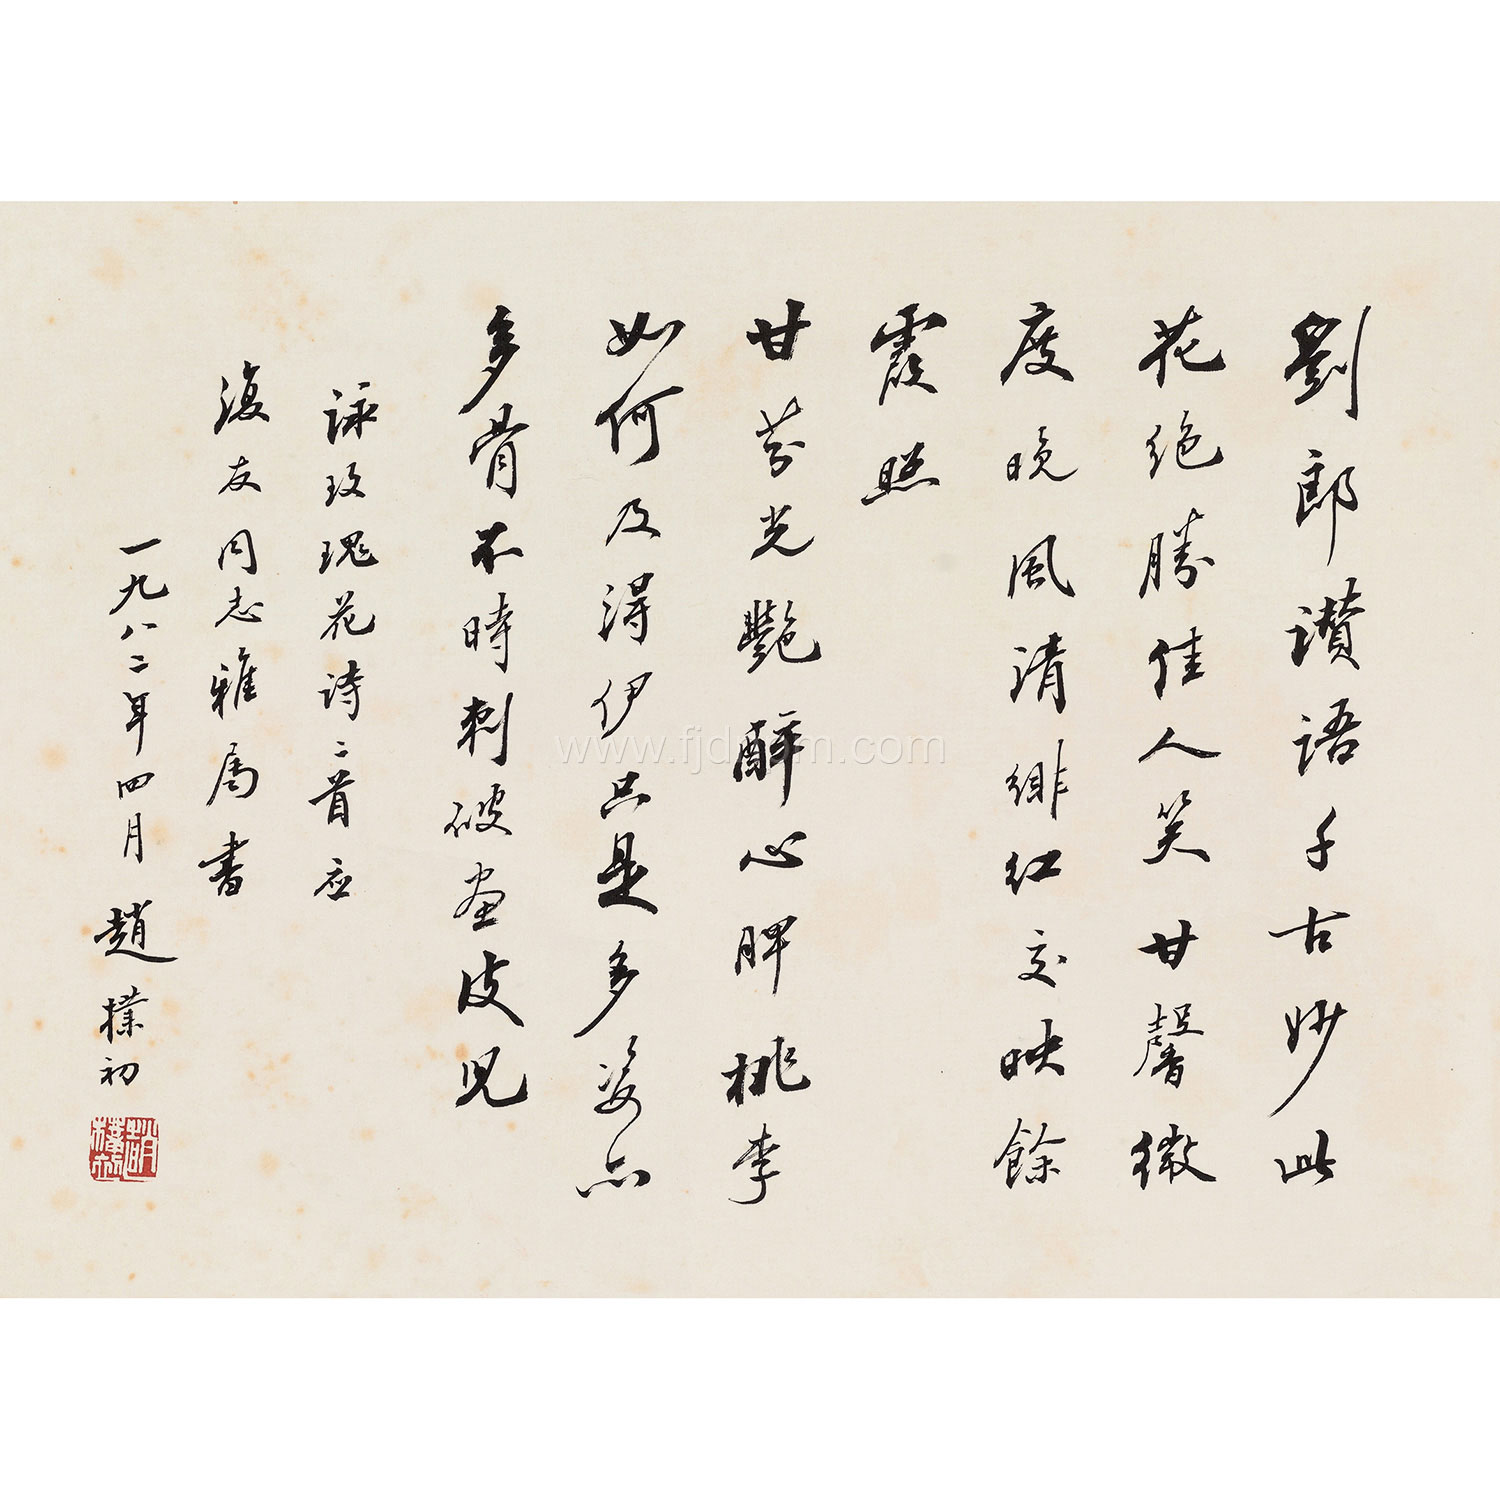 劉郎讃語千古妙此
花绝勝佳人笑甘馨微
度晓風清緋红交映餘
霞照
甘芬光艷醉心脾桃李
如何及得伊只是多姿亦
多骨不時刺破畫皮兒
詠玫瑰花诗二首应
復友同志雅属書
一九八二年四月趙樸初
趙樸初
www.fjdh.com